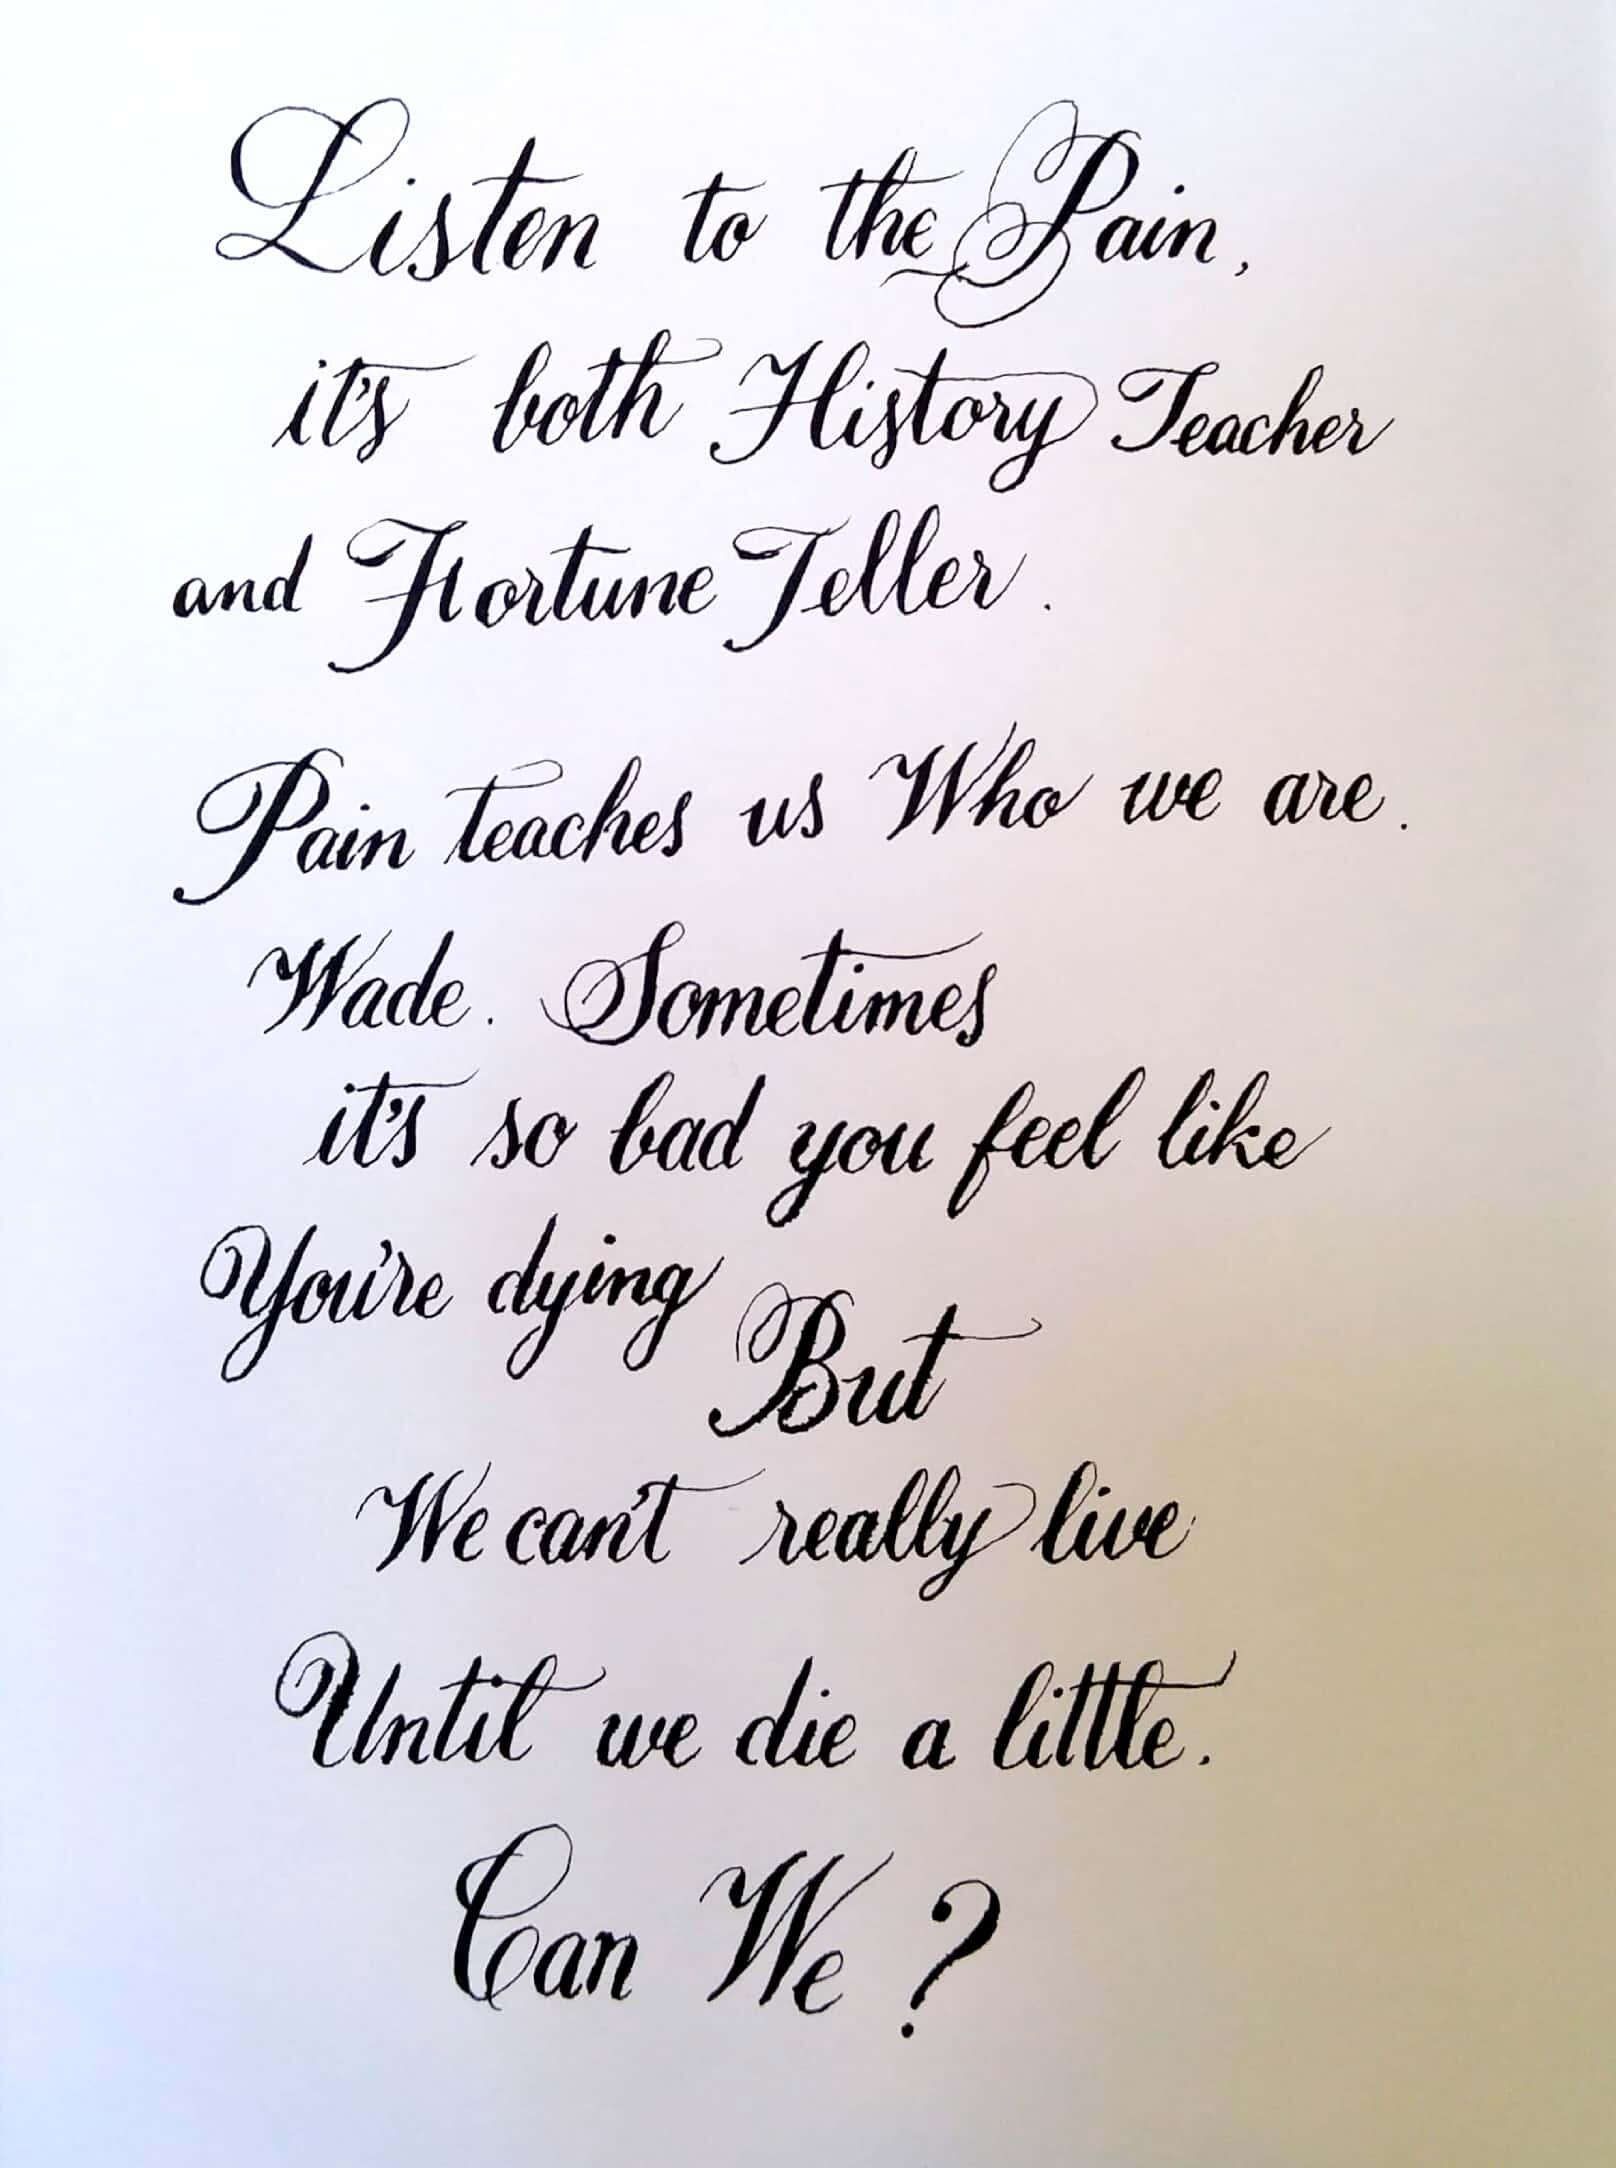 Listen to the Pain,
it's both History Teacher
and Fortune Teller.
Pain teaches us Who we are.
Wade. Sometimes
it's so bad you feel like
You're dying
But
We can't really live
Until we die a little.
Can We?